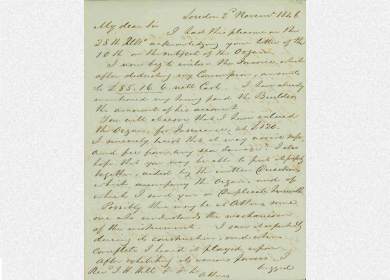 London 2 Novemr 1846
My dear Sir
I had this pleasure on the
28th Ulto acknowledging your letter of the
10th on the subject of the Organ.
I now beg to enclose the Invoice, which
after deducting my Commission, amounts
to £85.16.6 nett Cash. I have already
mentioned my having paid the Builder
the amount of his account.
You will observe that I have valued
the Organ, for Insurance, at £120.
I sincerely trust that it may arrive safe,
and free from any sea damage. I also
hope that you may be able to put it
together, aided by the written Directions
which accompany the Organ, and of
which I send you a Duplicate herewith
Possibly there may be at Athens some
one who understands the mechanism
of the instrument. I saw it repeatedly
during its construction, and when
Complete I heard it played upon.
After exhibiting its various powers, I
begged
Revd J. H. Hill
Athens